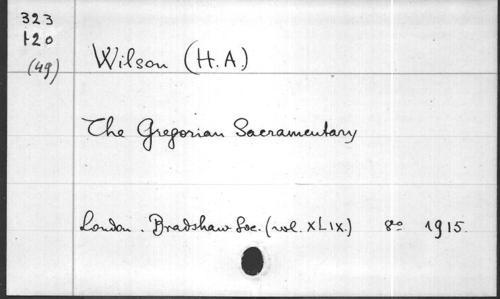 323
120
(49)
Wilson (H.A.)
The Gregorian Sacramentary
London. Bradshaw Soc. (vol. XLIX.) 8º 1915.